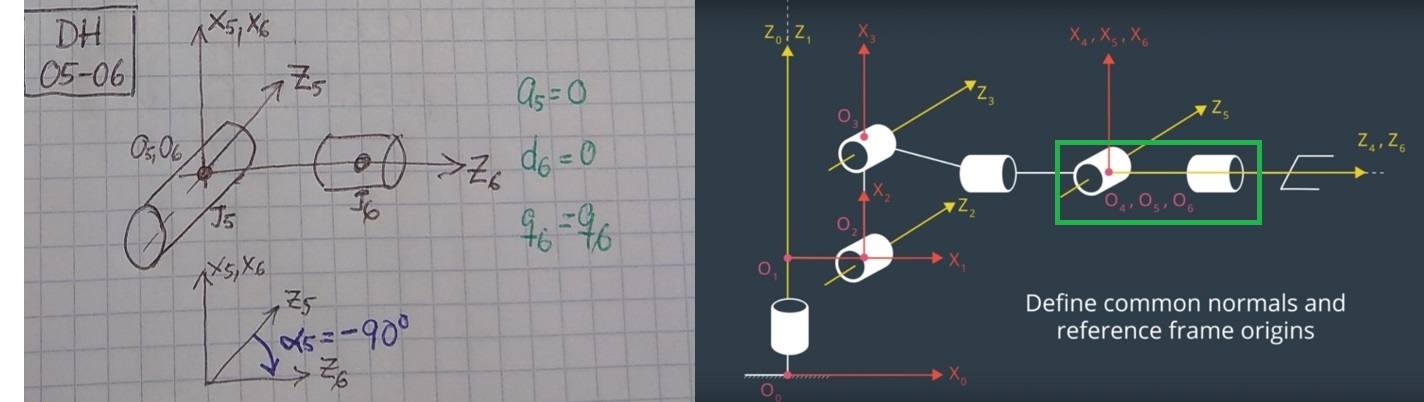 DH
05-06
X5, X6
Z5
O5, O6
Z6
J5
J6
a5 = 0
d6 = 0
q6 = q6
X5, X6
Z5
α5 = -90°
Z6
Z0 Z1
X3
X4, X5, X6
Z3
Z5
O3
Z4, Z6
X2
O4, O5, O6
Z2
O2
O1
X1
Define common normals and
reference frame origins
X0
O0